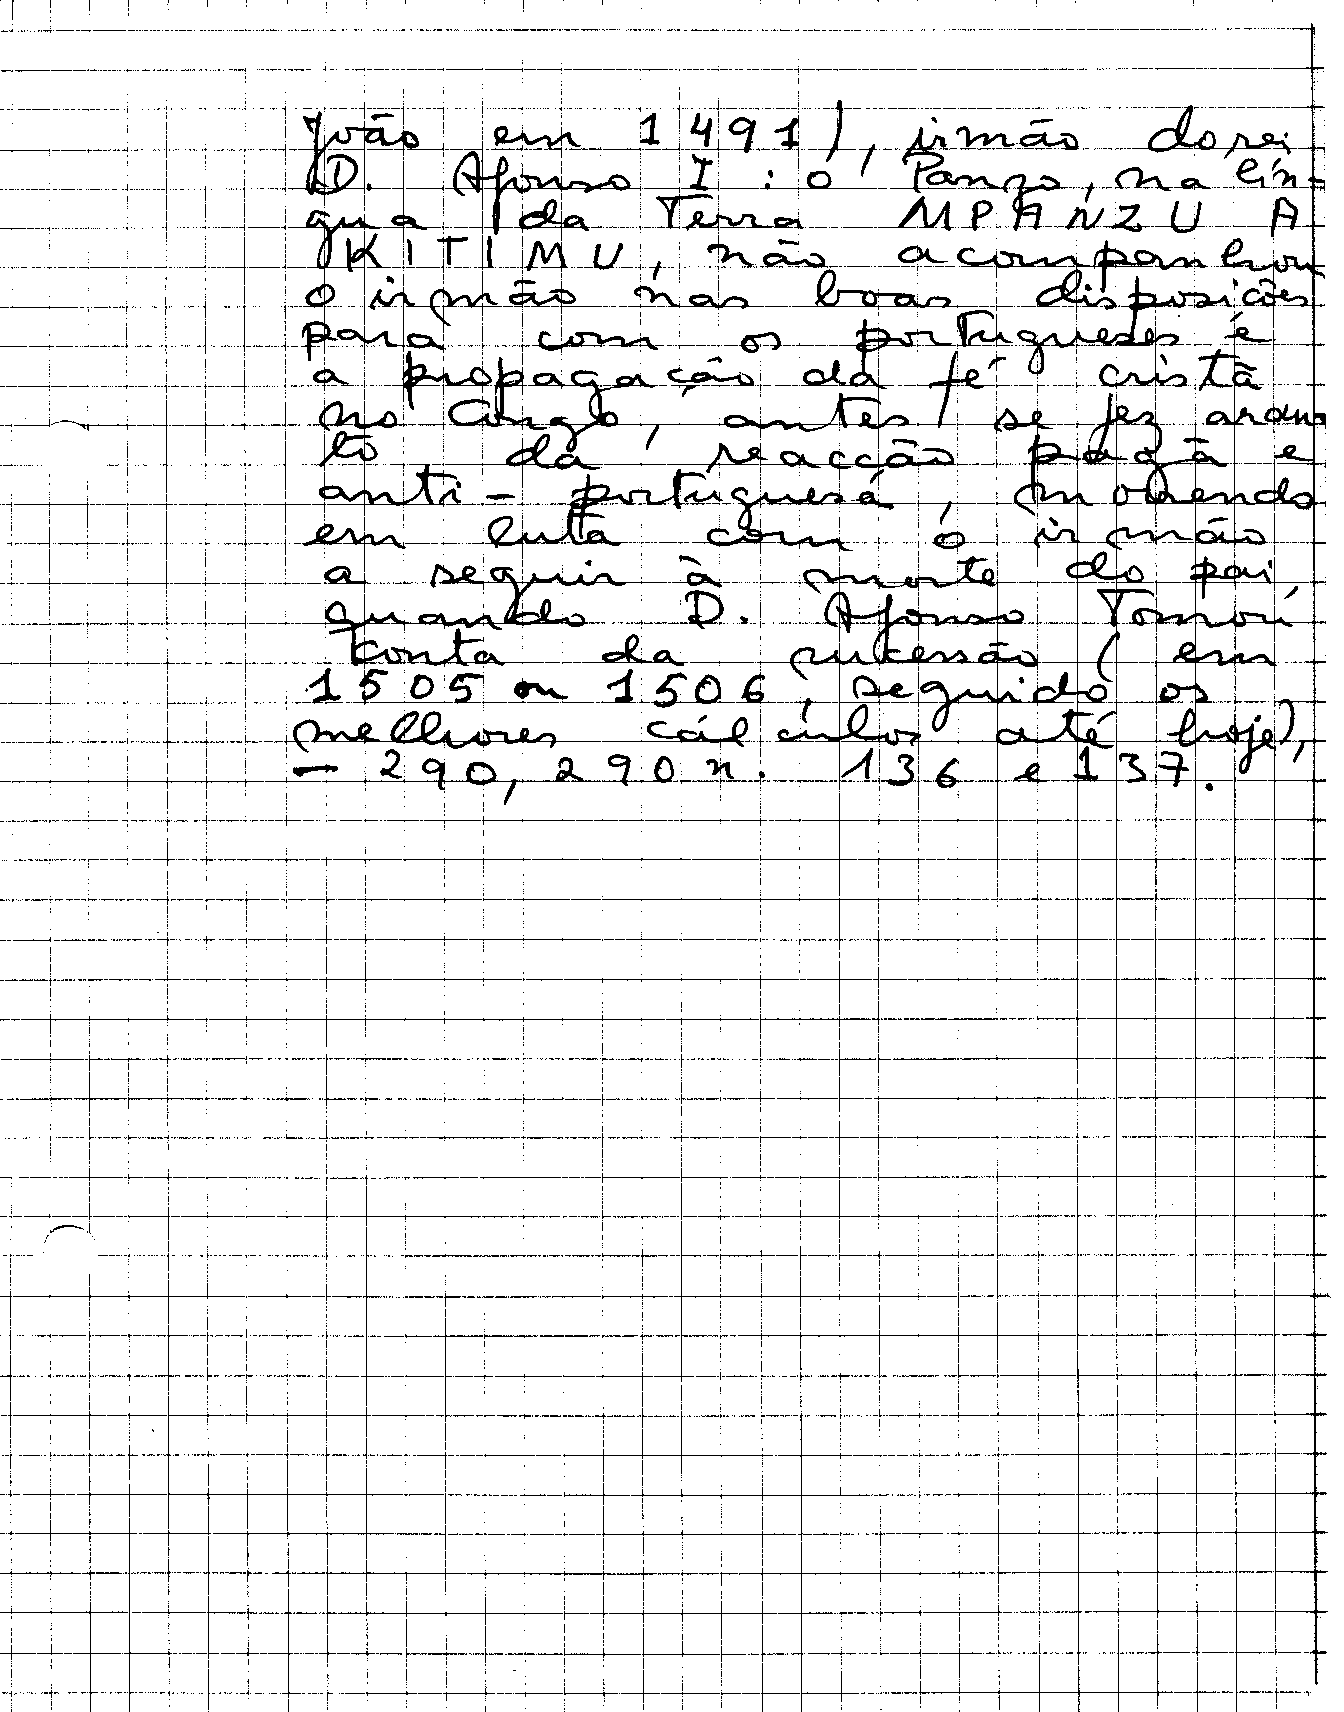 João em 1491), irmão do rei
D. Afonso I : o Panzo, na lín-
gua da Terra MPANZU A
KITIMU, não acompanhou
o irmão nas boas disposições
para com os portugueses e
a propagação da fé cristã
no Congo, antes se fez arau-
to da reacção pagã e
anti-portuguesa, morrendo
em luta com o irmão
a seguir à morte do pai,
quando D. Afonso Tomou
conta da sucessão (em
1505 ou 1506, seguido os
melhores cálculos até hoje),
— 290, 290 n. 136 e 137.